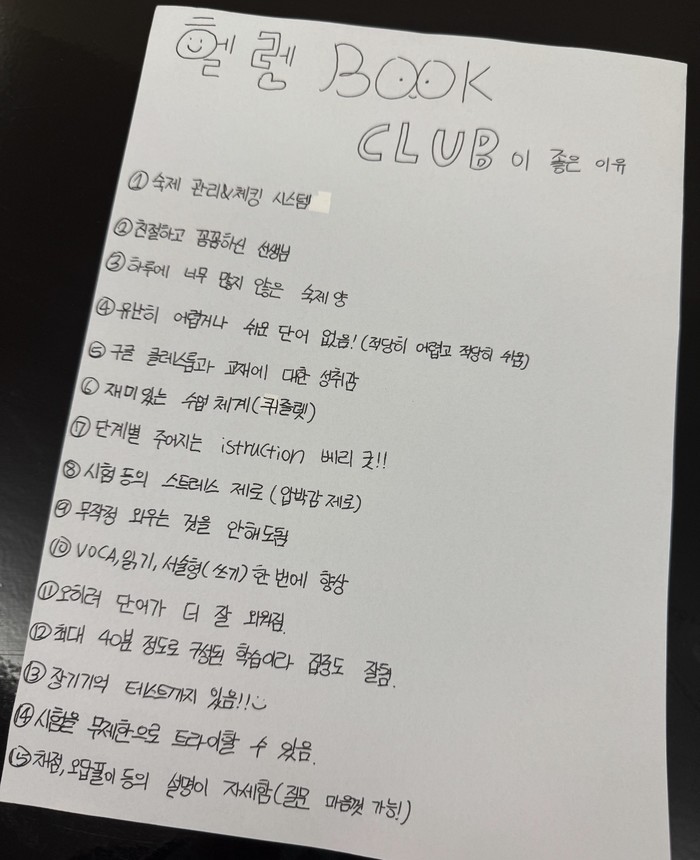 헬렌 BOOK
CLUB이 좋은 이유
① 숙제 관리&체킹 시스템
② 친절하고 꼼꼼하신 선생님
③ 하루에 너무 많지 않은 숙제 양
④ 유난히 어렵거나 쉬운 단어 없음! (적당히 어렵고 적당히 쉬움)
⑤ 구글 클레스룸과 교재에 대한 성취감
⑥ 재미있는 수업 체계(퀴즐렛)
⑦ 단계별 주어지는 istruction 베리 굿!!
⑧ 시험 등의 스트레스 제로 (압박감 제로)
⑨ 무작정 외우는 것을 안해도됨
⑩ VOCA, 읽기, 서술형(쓰기) 한 번에 향상
⑪ 오히려 단어가 더 잘 외워짐.
⑫ 최대 40분 정도로 구성된 학습이라 집중도 잘됨.
⑬ 장기기억 테스트까지 있음!!
⑭ 시험을 무제한으로 트라이할 수 있음.
⑮ 채점, 오답풀이 등의 설명이 자세함(질문 마음껏 가능!)